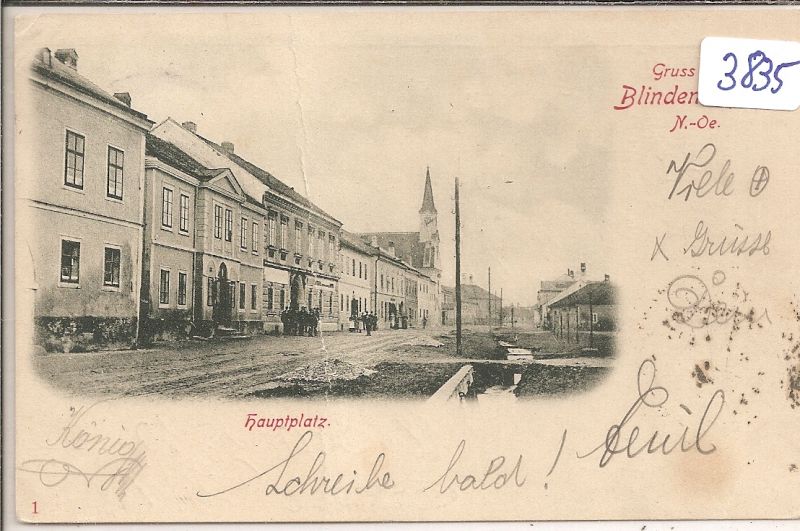 Gruss
Blinden
N.-Oe.
3835
Viele
x Grüsse
Hauptplatz.
König
Schreibe bald!
1